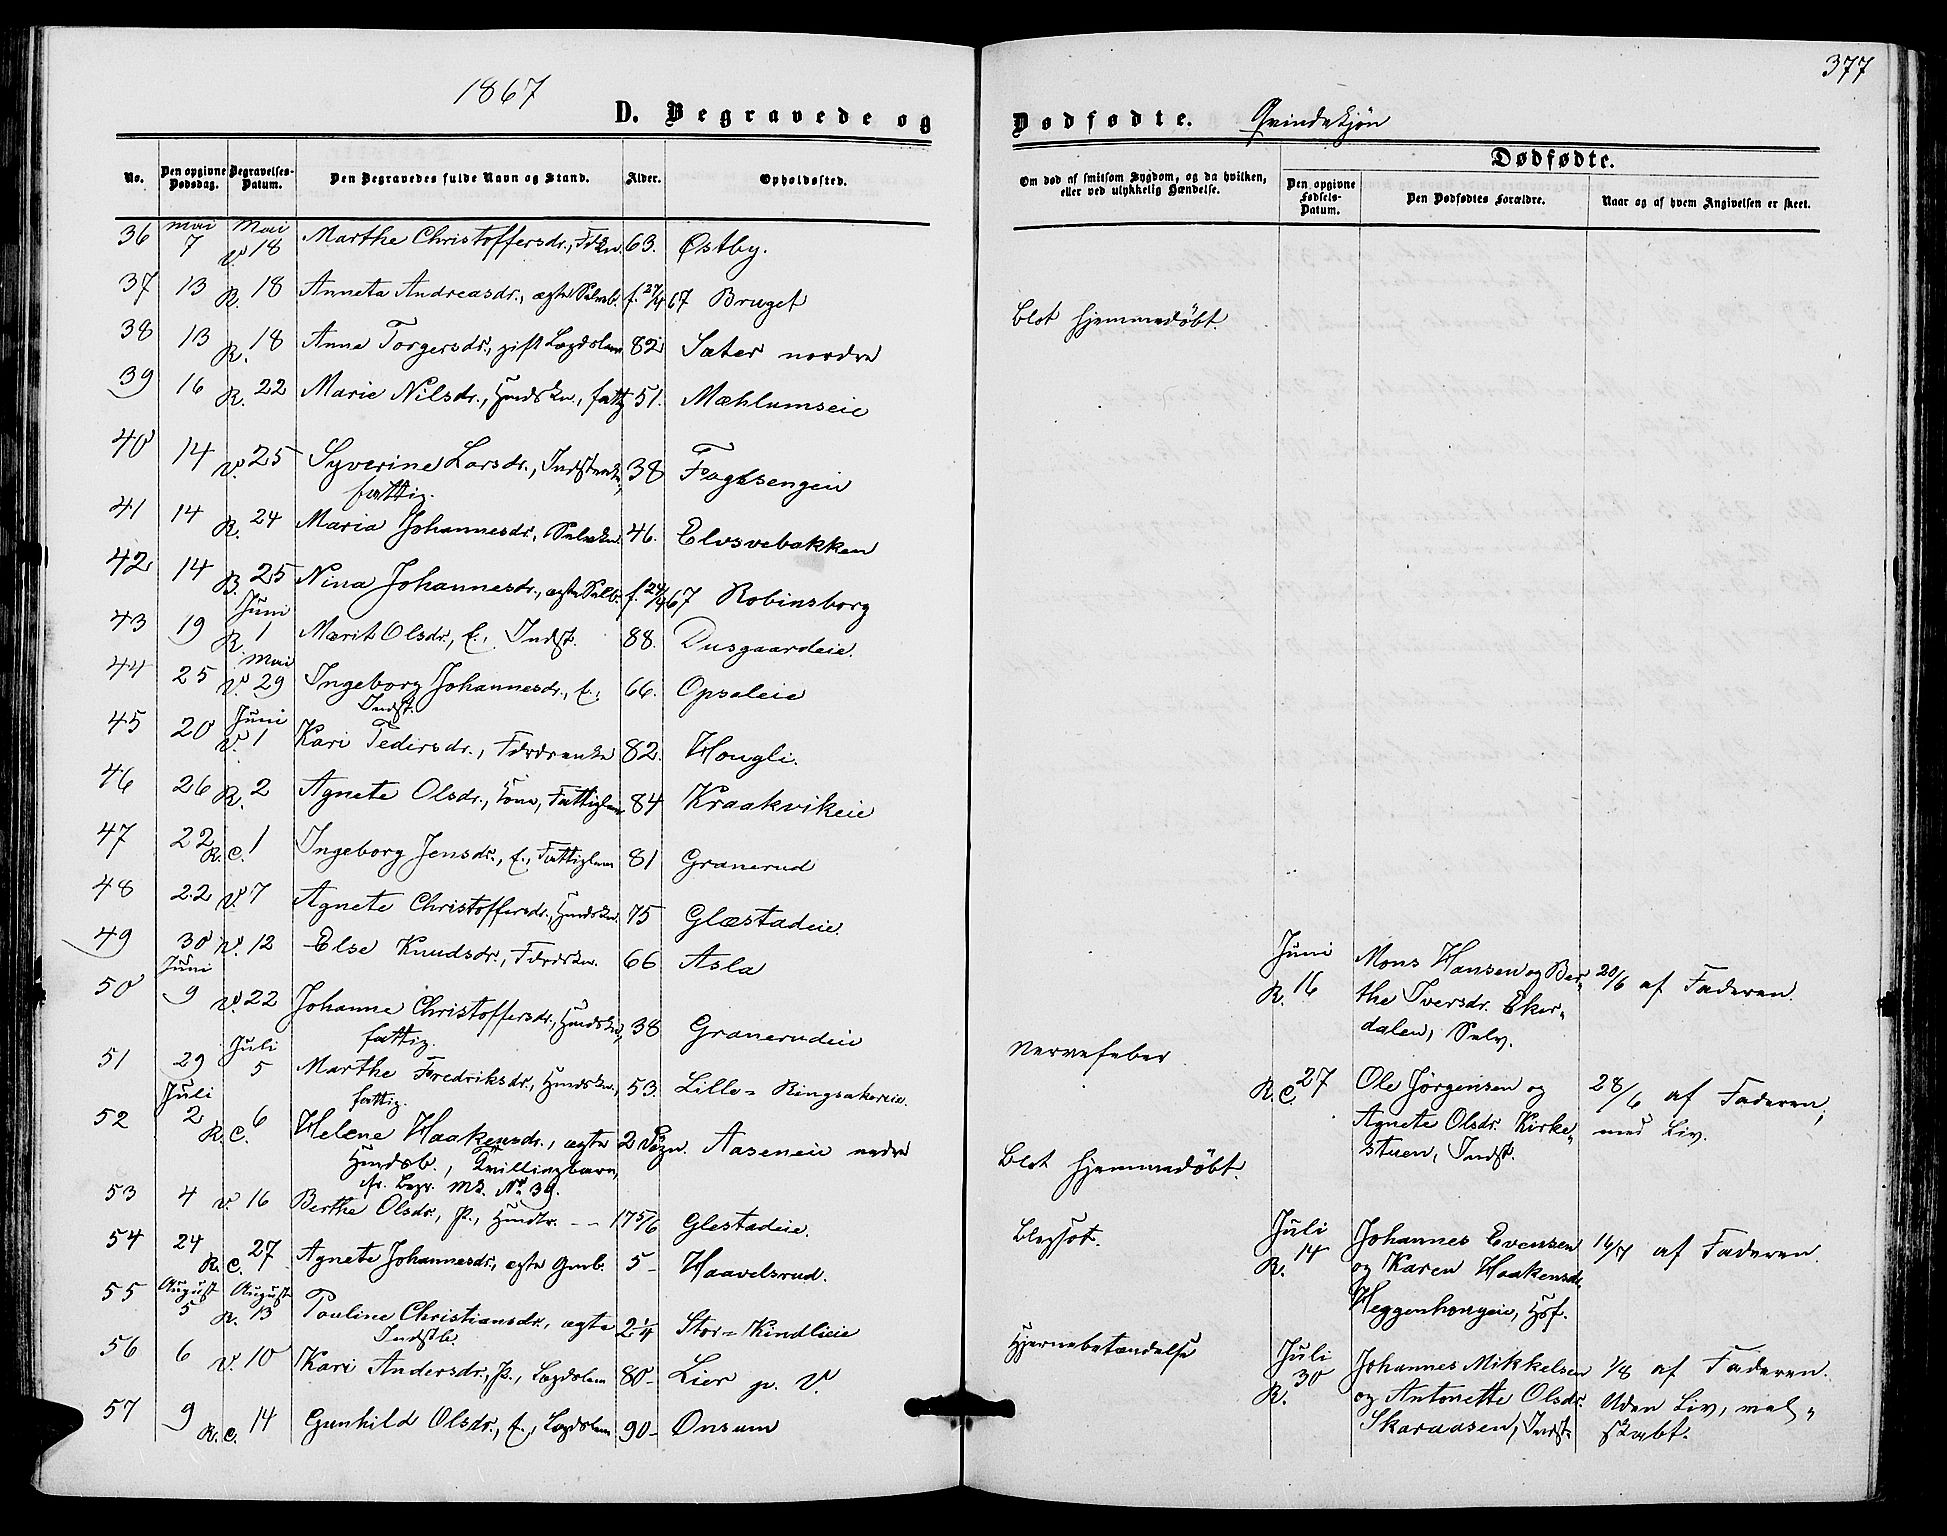 1867
377
D. Begravede og Dødfødte. Qvindekjøn
No.
Den opgivne Dødsdag.
Begravelses-Datum.
Den Begravedes fulde Navn og Stand.
Alder.
Opholdssted.
Om død af smitsom Sygdom, og da hvilken, eller ved ulykkelig Hændelse.
Dødfødte.
Den opgivne Fødsels-Datum.
Den Dødfødtes Forældre.
Naar og af hvem Angivelsen er skeet.
36 Mai 7 Mai V. 18 Marthe Christoffersdr., 63. Østby.
37 13 R. 18 Anneta Andreasdr., ægte Selveb. f. 27/4 67 Bruget Blot hjemmedøbt.
38 13 R. 18 Anne Torgersdr., gift Lægdslem 82 Sæter nordre
39 16 R. 22 Marie Nilsdr., Husmkn., fattig 51. Mæhlumseie
40 14 V. 25 Syverine Larsdr., 38
fattig.
41 14 R. 24 Maria Johannesdr., Selvekn. 46. Elvsvebakken
42 14 B. 25 Nina Johannesdr., ægte Selvb. f. 24/4 67 Robinsborg
43 19 Juni R. 1 Marit Olsdr., E., Indst. 88. Dusgaardeie.
44 25 Mai V. 29 Ingeborg Johannesdr., E., 66. Opsaleie
Indst.
45 20 Juni V. 1 Kari Pedersdr., 82. Hougli.
46 26 R. 2 Agnete Olsdr., Kone, Fattiglem 84 Kraakvikeie
47 22 R. C. 1 Ingeborg Jensdr., E., Fattiglem 81 Granerud
48 22 V. 7 Agnete Christoffersdr., 75 Glæstadeie.
49 30 V. 12 Else Knudsdr., 66 Asla
50 Juni 9 V. 22 Johanne Christoffersdr., 38 Granerudeie Nervefeber
fattig.
51 29 Juli 5 Marthe Fredriksdr., 53. Lille-Ringsakereie.
fattig.
52 Juli 2 R. C. 6 Helene Haakensdr., ægte 2 Døgn. Aaseneie nedre Blot hjemmedøbt.
Husmdsb., Tvillingbarn,
cfr. Begr. Mk. No 39.
53 4 V. 16 Berthe Olsdr., P., - - 17 5/6 Glestadeie. Blegsot.
54 24 R. C. 27 Agnete Johannesdr., ægte Gmb. 5 - Haavelsrud.
55 August 5 August R. 13 Pouline Christiansdr., ægte 2 1/4 Stor-Kindlieie Hjernebetændelse
Indstb.
56 6 V. 10 Kari Andersdr., P., Lægdslem 80 - Lier p. V.
57 9 R. C. 14 Gunhild Olsdr., E., Lægdslem 90 - Onsum
Juni R. 16 Mons Hansen og Ber-
the Iversdr. Eker-
dalen, Selv. 20/6 af Faderen.
R. C. 27 Ole Jörgensen og
Agnete Olsdr. Kirke-
stuen, Indst. 28/6 af Faderen,
med Liv.
Juli R. 14 Johannes Evensen
og Karen Haakensdr.
Heggenhougeie, Hsf. 16/7 af Faderen.
Juli R. 30 Johannes Mikkelsen
og Antonette Olsdr.
Skaraasen, Indst. 1/8 af Faderen.
Uden Liv, vel-
skabt.